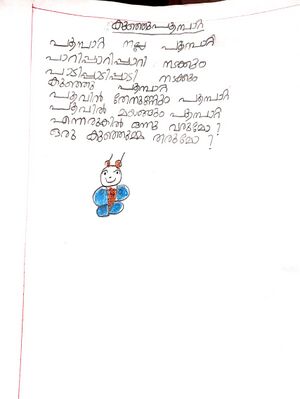 കുഞ്ഞുപൂമ്പാറ്റ
പൂമ്പാറ്റ നല്ല പൂമ്പാറ്റ
പാറിപ്പാറിപ്പാറി നടക്കും
പാടിപ്പാടിപ്പാടി നടക്കും
കുഞ്ഞു പൂമ്പാറ്റ
പൂവിൻ തേനുണ്ണും പൂമ്പാറ്റ
പൂവിൽ മയങ്ങും പൂമ്പാറ്റ
എന്നരുകിൽ ഒന്നു വരുമോ?
ഒരു കുഞ്ഞുമ്മ തരുമോ?